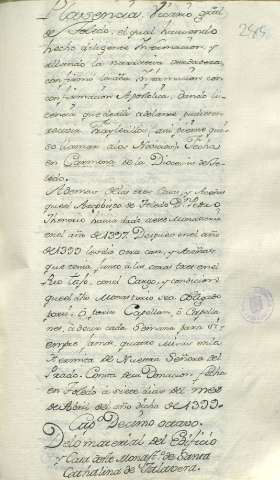 Plasencia, Vicario gral
de Toledo, el qual haviendo
hecho diligente Informacion, y
allando la narrativa verdadera,
confirmó la dha Informacion con
confirmacion Apostolica, dando li-
cencia que desde adelante pudiesen
Frayles, assi
se llaman dias Notario. Fecha
en Carmona de la Diocesis de
ledo.
Ademas de las tres Casas, y Aceñas
que el Arzobispo de Toledo Dn Pedro
Thenorio havia dado a este Monasterio
en el año de 1397. Despues en el año
de 1399 les dio otra casa, y Aceñas
que tenia, junto a las otras tres en el
Rio Tajo, con el Cargo, y condicion
que el dho Monasterio sea obligado
para si poner Capellan, ó Capella-
nes, a decir cada Semana para si-
empre jamas, quatro Misas en la
Hermita de Nuestra Señora del
Prado. Consta de su Donacion, fecha
en Toledo a siete dias del mes
de Abril del año dicho de 1399.
Capo Decimo octavo.
De lo material del Edificio
y Casa deste Monasto de Santa
Cathalina de Talavera.